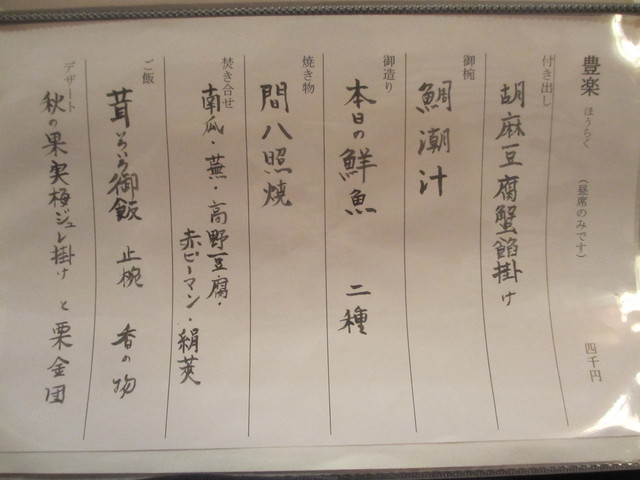 豊楽 ほうらく (昼席のみです) 四千円
付き出し
胡麻豆腐蟹餡掛け
御椀
鯛潮汁
御造り
本日の鮮魚 二種
焼き物
間八照焼
焚き合せ
南瓜・蕪・高野豆腐・
赤ピーマン・絹莢
ご飯
茸いろいろ御飯 止椀 香の物
デザート
秋の果実梅ジュレ掛け と 栗金団